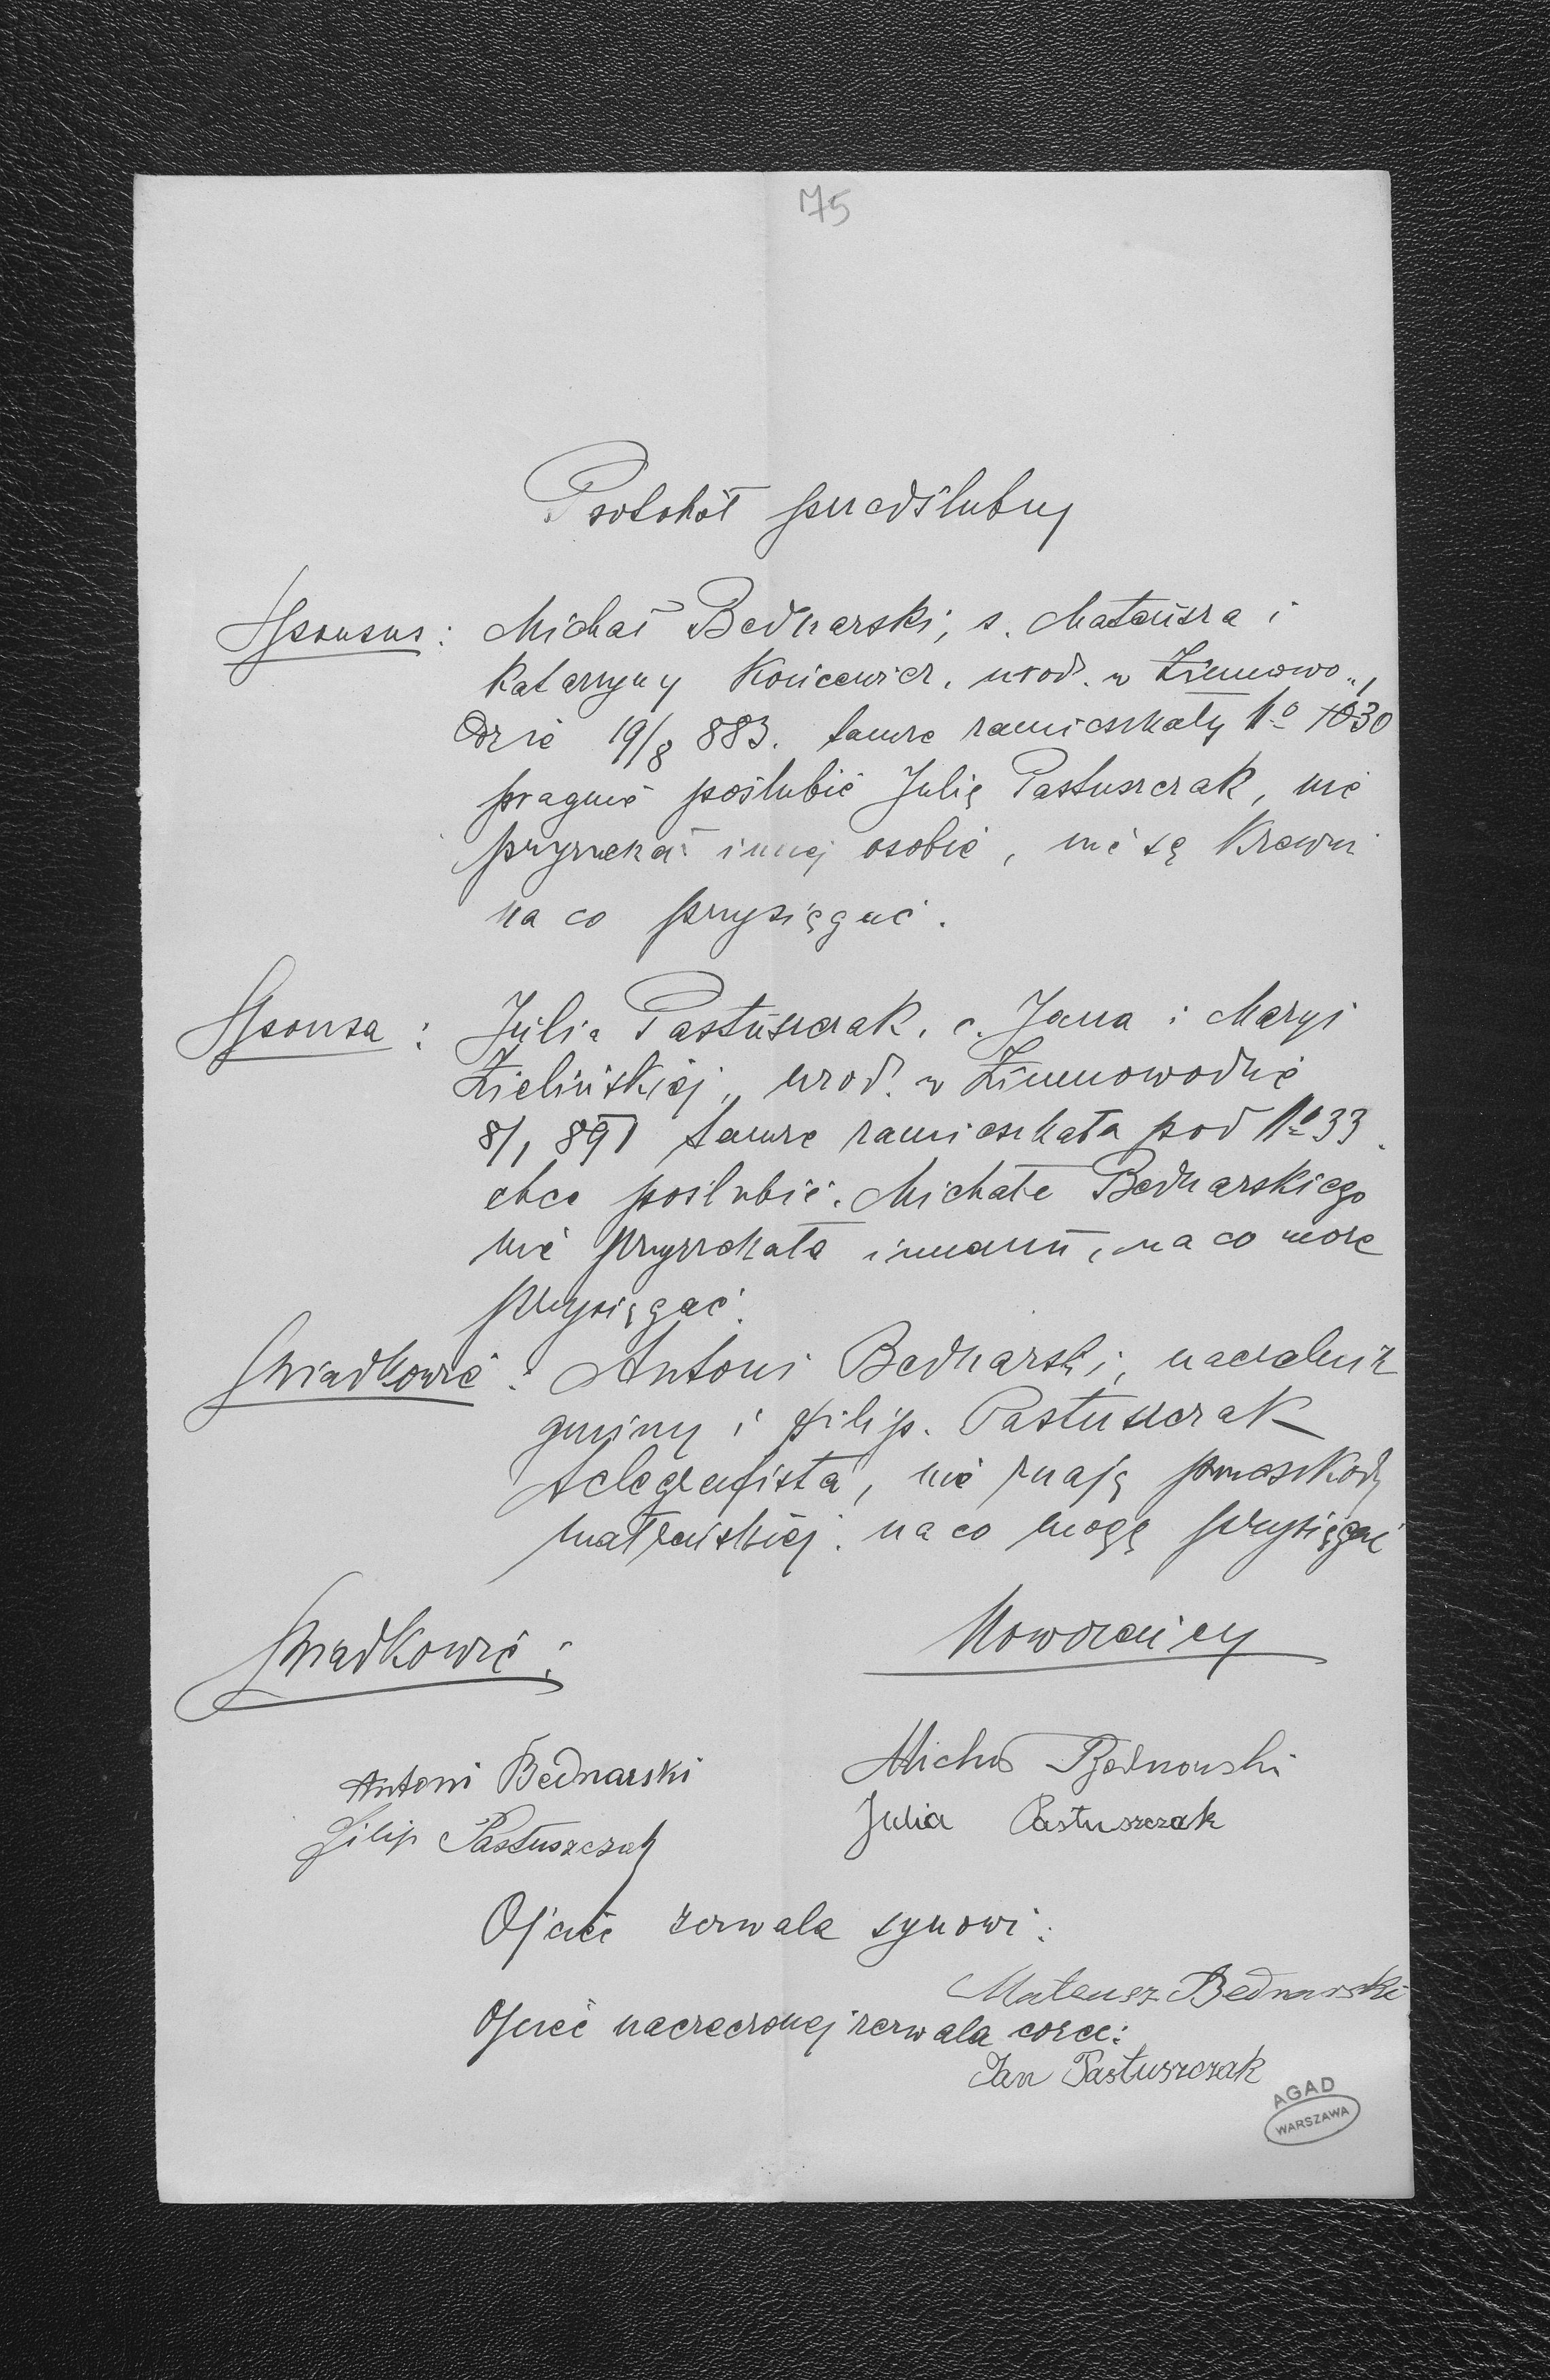 75
Protokół przedślubny
Sponsus: Michał Bednarski, s. Mateusza i
Katarzyny Koncewicz, urod. w Zimnowo„
dzie 19/8 883. tamże zamieszkały No 1030
pragnie poślubić Julię Pastuszczak, nie
przyrzekał innej osobie, nie są krewni
na co przysięgnie.
Sponsa: Julia Pastuszczak, c. Jana i Maryi
Zielińskiej, urod. w Zimnowodzie
8/1 891 tamże zamieszkała pod No 33.
chce poślubić Michała Bednarskiego
nie przyrzekała innemu, na co może
przysięgać.
Świadkowie: Antoni Bednarski, naczelnik
gminy i Filip Pastuszczak
telegrafista, nie znają przeszkody
małżeńskiej. na co mogą przysięgać
Świadkowie: Nowożeńcy
Antoni Bednarski Michał Bednarski
Filip Pastuszczak Julia Pastuszczak
Ojciec zezwala synowi:
Mateusz Bednarski
Ojciec narzeczonej zezwala córce:
Jan Pastuszczak
AGAD
WARSZAWA